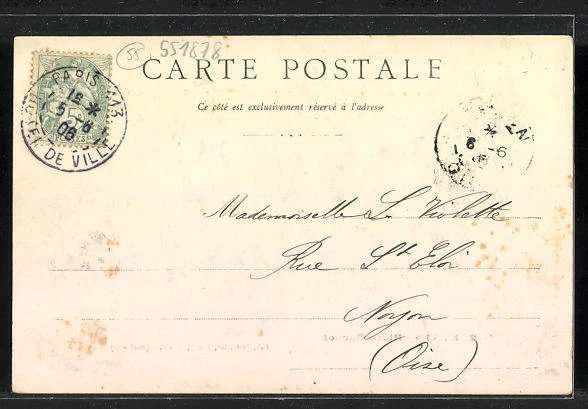 55
551878
CARTE POSTALE
Ce côté est exclusivement réservé à l'adresse
PARIS 113
12 *
5 -6
06
HOTEL DE VILLE
*
6
-6
Mademoiselle L. Violette
Rue St Eloi
Noyon
(Oise)